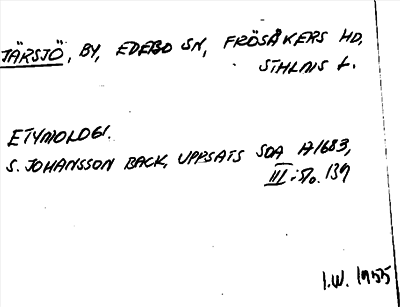 JÄRSJÖ, BY, EDEBO SN, FRÖSÅKERS HD,
STHLMS L.
ETYMOLOGI.
S. JOHANSSON BACK, UPPSATS SOA A1683,
III: 5/0. 139
I.W. 1955